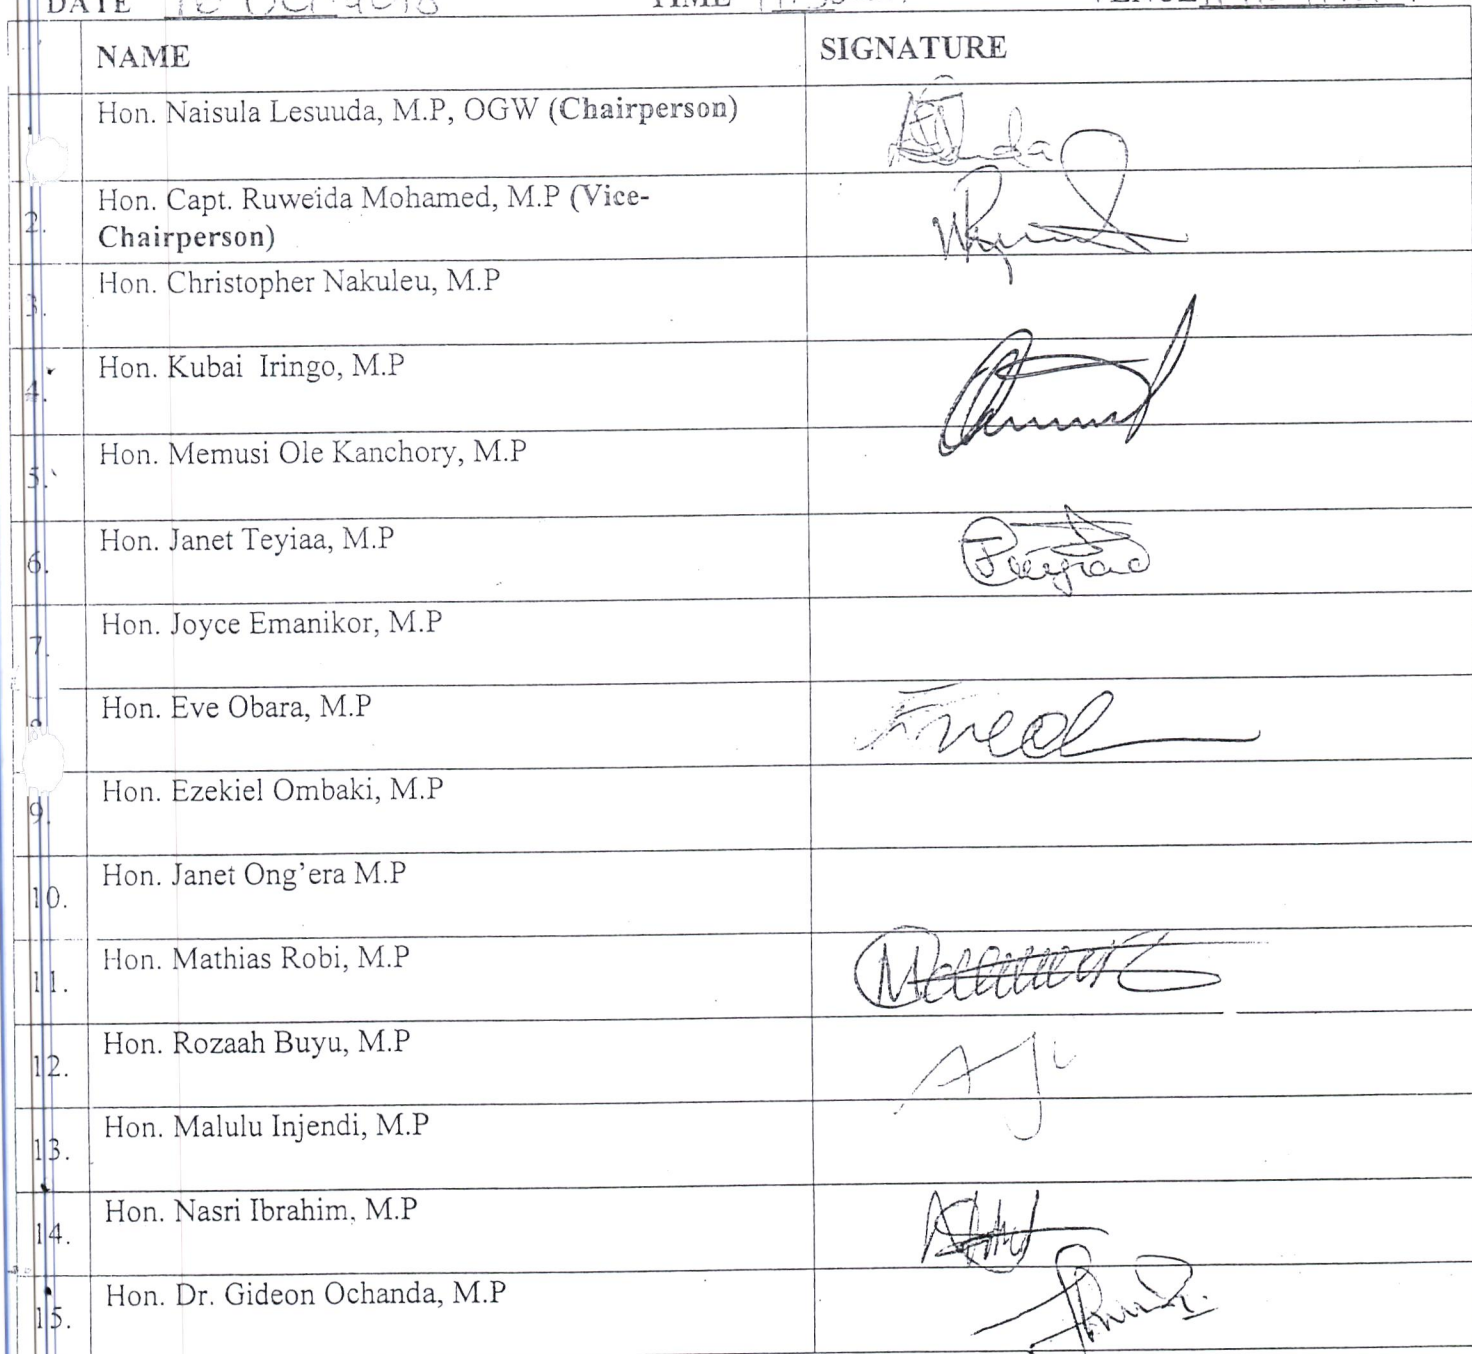 DATE
TIME
VENUE
NAME SIGNATURE
1. Hon. Naisula Lesuuda, M.P, OGW (Chairperson)
2. Hon. Capt. Ruweida Mohamed, M.P (Vice-
Chairperson)
3. Hon. Christopher Nakuleu, M.P
4. Hon. Kubai Iringo, M.P
5. Hon. Memusi Ole Kanchory, M.P
6. Hon. Janet Teyiaa, M.P
7. Hon. Joyce Emanikor, M.P
8. Hon. Eve Obara, M.P
9. Hon. Ezekiel Ombaki, M.P
10. Hon. Janet Ong’era M.P
11. Hon. Mathias Robi, M.P
12. Hon. Rozaah Buyu, M.P
13. Hon. Malulu Injendi, M.P
14. Hon. Nasri Ibrahim, M.P
15. Hon. Dr. Gideon Ochanda, M.P